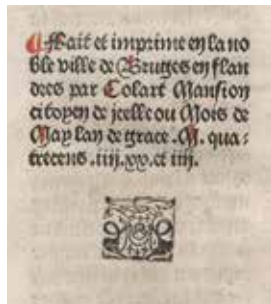 Fait et imprime en la no
ble ville de Bruges en flan
dres par Colart Mansion
citoyen de icelle ou Mois de
May lan de grace .M. qua⸗
trecens .iiij.xx.et iiij.